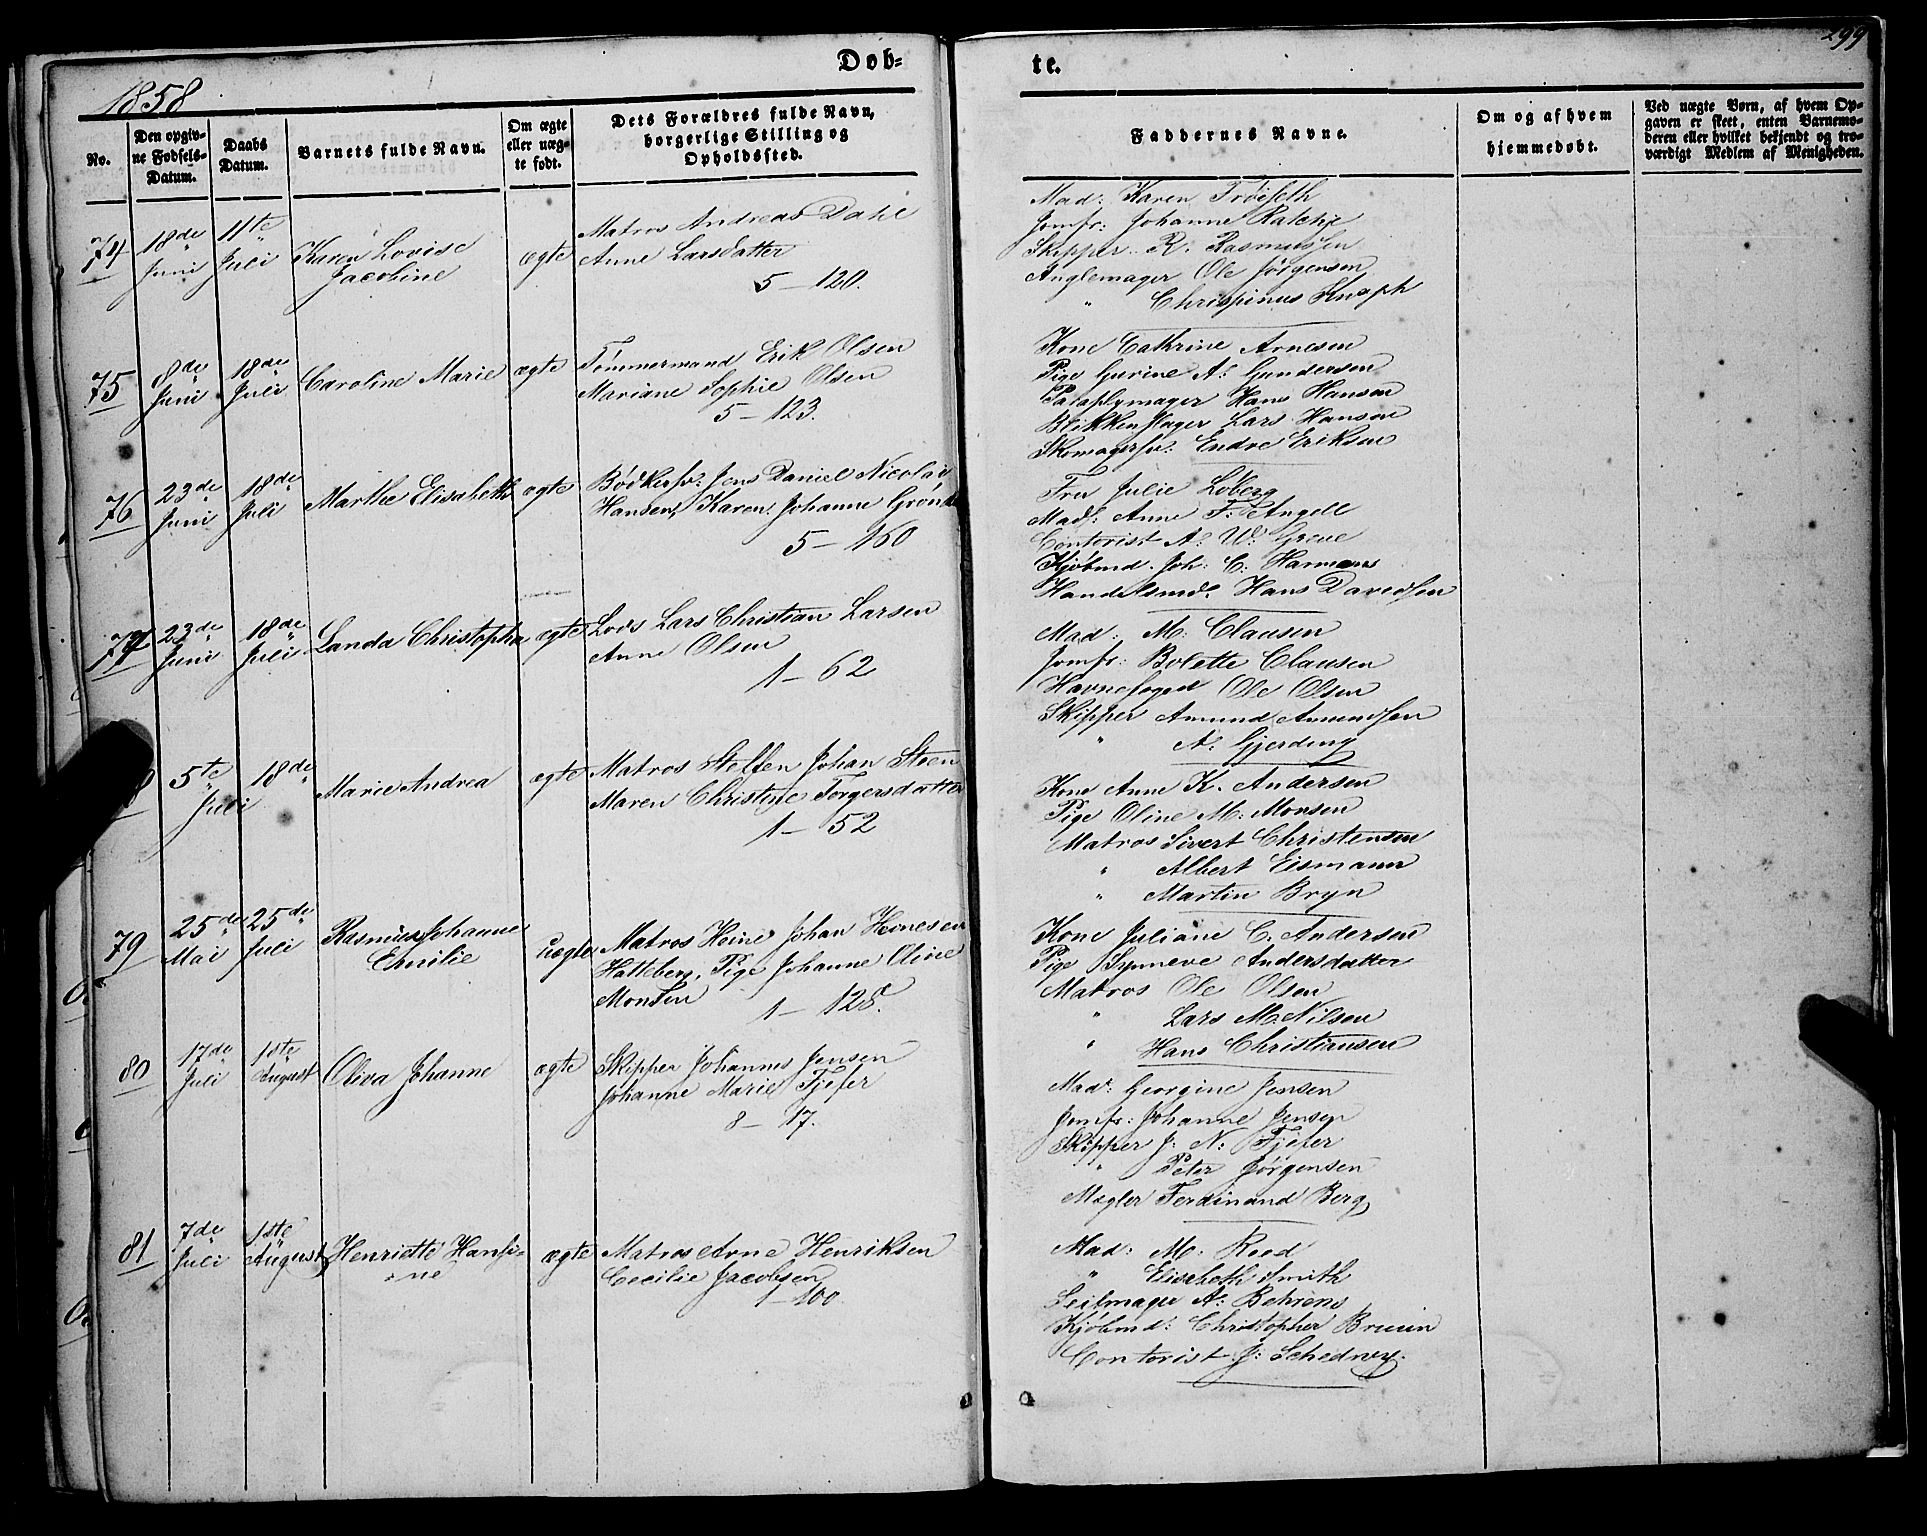 299
Döb=
te.
1858
No.
Den opgiv-
ne Fødsels-
Datum.
Daabs
Datum.
Barnets fulde Navn.
Om ægte
eller uæg-
te født.
Dets Forældres fulde Navn,
borgerlige Stilling og
Opholdssted.
Faddernes Navne.
Om og af hvem
hjemmedøbt.
Ved uægte Børn, af hvem Op-
gaven er skeet, enten Barnemo-
deren eller hvilket bekjendt og tro-
værdigt Medlem af Menigheden.
74
18de
Juni
11te
Juli
Karen Lovise
Jacobine
ægte
Matros Andreas Dahl
Anne Larsdatter
5 - 120.
Mad: Karen
Jomfr: Johanne
Skipper R. Rasmussen
Anglemager Ole Jörgensen
" Chrispinus Knoph
75
8de
Juni
18de
Juli
Caroline Marie
ægte
Tömmermand Erik Olsen
Mariane Sophie Olsen
5 - 123.
Kone Cathrine Arnesen
Pige Gurine A: Gundersen
Paraplymager Hans Hansen
Blikkenslager Lars Hansen
Skomagersv: Endre Eriksen
76
23de
Juni
18de
Juli
Marthe Elisabeth
ægte
Bødkersv: Jens Daniel Nicolai
Hansen, Karen Johanne
5 - 160
Fru Julie Löberg
Mad: Anne F: Angell
Contorist A: W: Greve
Kjöbmd. Joh: C: Harmens
Handelsmd. Hans Davidsen
77
23de
Juni
18de
Juli
Landa Christopha
ægte
Lods Lars Christian Larsen
Anne Olsen
1 - 62
Mad: M: Clausen
Jomfr: Bolette Clausen
Havnefoged Ole Olsen
Skipper Amund Amundsen
" A: Gjerding
5te
Juli
18de
"
Marie Andrea
ægte
Matros Steffen Johan Steen
Maren Christine Torgersdatter
1 - 52
Kone Anne K. Andersen
Pige Oline M: Monsen
Matros Sivert Christensen
" Albert Eismann
" Martin Bryn
79
25de
Mai
25de
Juli
Rasmine Johanne
Emilie
uægte
Matros Heine Johan Heinesen
Hatteberg, Pige Johanne Oline
Monsen
1 - 128.
Kone Juliane C. Andersen
Pige Synneve Andersdatter
Matros Ole Olsen
" Lars M. Nilsen
" Hans Christiansen
80
17de
Juli
1ste
August
Oliva Johanne
ægte
Skipper Johannes Jensen
Johanne Marie Fjeser
8 - 17.
Mad: Georgine Jensen
Jomfr: Johanne Jensen
Skipper J: N: Fjeser
" Peter Jörgensen
Mægler Ferdinand Berg
81
7de
Juli
1ste
August
Henriette Hansi-
ne
ægte
Matros Arne Henriksen
Cecilie Jacobsen
1 - 100
Mad: M: Roed
" Elisabeth Smith
Seilmager A: Behrens
Kjöbmd: Christopher Bruun
Contorist J: